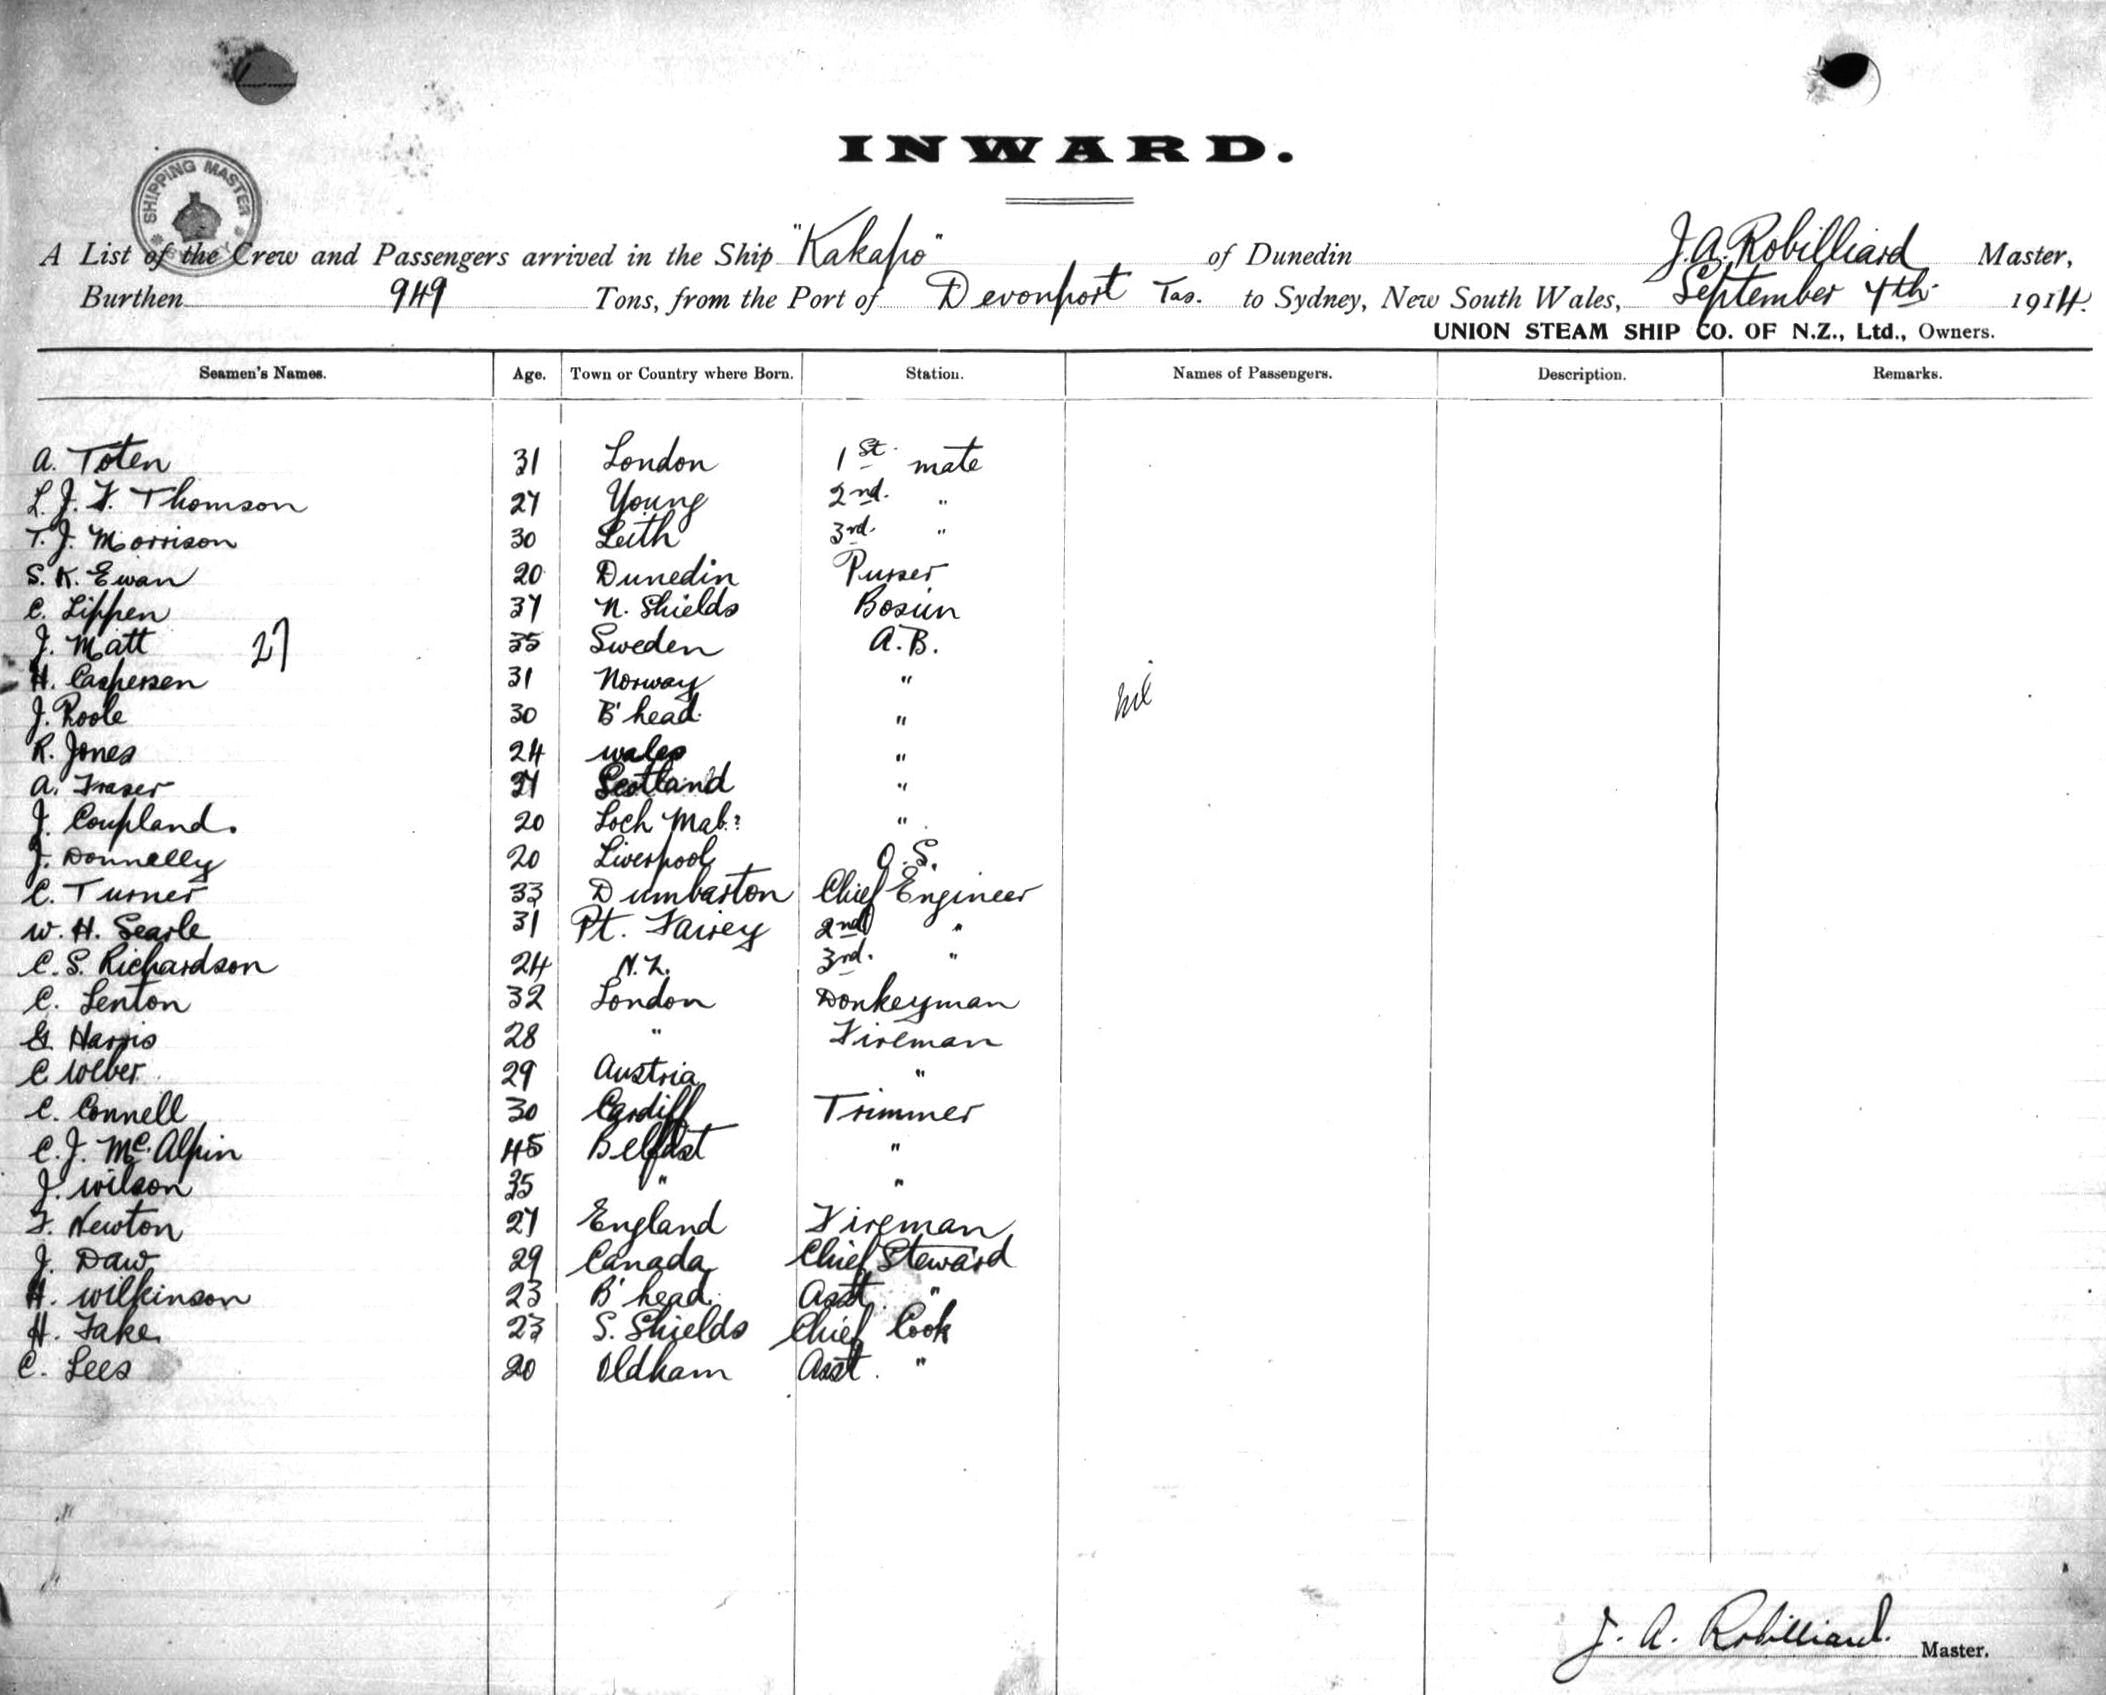 INWARD.
SHIPPING MASTER
A List of the Crew and Passengers arrived in the Ship "Kakapo" of Dunedin J. A. Robilliard Master,
Burthen 949 Tons, from the Port of Devonport Tas. to Sydney, New South Wales, September 7th 1914.
UNION STEAM SHIP CO. OF N.Z., Ltd., Owners.
Seamen's Names. Age. Town or Country where Born. Station. Names of Passengers. Description. Remarks.
A. Toten 31 London 1st mate
L. J. F. Thomson 27 Young 2nd. "
T. J. Morrison 30 Leith 3rd. "
S. K. Ewan 20 Dunedin Purser
C. Lippen 37 N. Shields Bosun
J. Matt 27 35 Sweden A.B.
H. Caspersen 31 Norway " nil
J. Poole 30 B'head "
R. Jones 24 Wales "
A. Fraser 27 Scotland "
J. Coupland. 20 Loch Mab.? "
J. Donnelly 20 Liverpool O.S.
C. Turner 33 Dumbarton Chief Engineer
W. H. Searle 31 Pt. Fairey 2nd "
C. S. Richardson 24 N.Z. 3rd. "
C. Lenton 32 London Donkeyman
G. Harris 28 " Fireman
C Weber 29 Austria "
C. Connell 30 Cardiff Trimmer
C. J. McAlpin 45 Belfast "
J. Wilson 35 " "
F. Newton 27 England Fireman
J. Daw 29 Canada Chief Steward
H. Wilkinson 23 B'head Asst. "
H. Fake 23 S. Shields Chief Cook
C. Lees 20 Oldham Asst. "
J. A. Robilliard. Master.